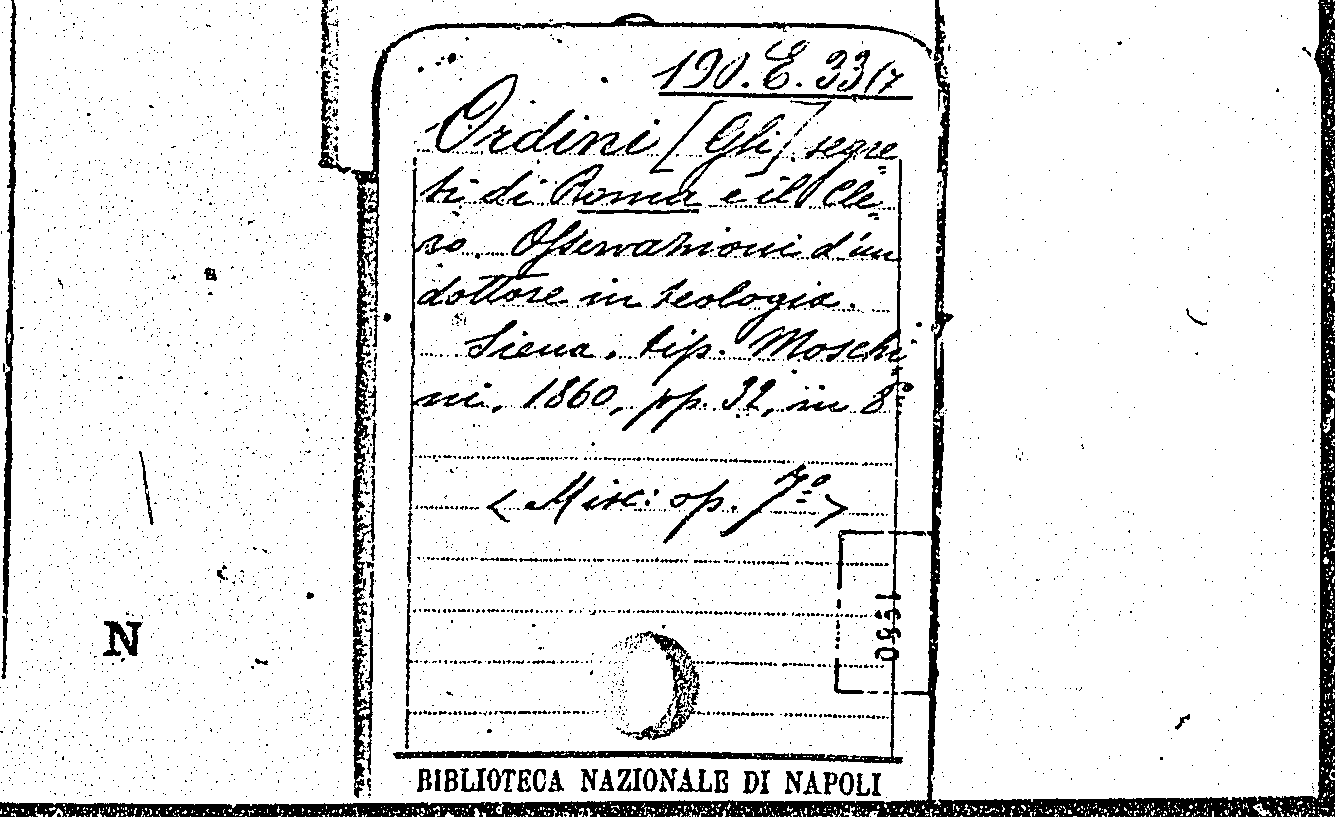 190.E.33/7
Ordini [Gli] segre=
ti di Roma e il Cle=
ro. Osservazioni d'un
dottore in teologia.
Siena, tip. Moschi=
ni, 1860, pp. 32, in 8º
<Misc: op. 7º>
N
BIBLIOTECA NAZIONALE DI NAPOLI